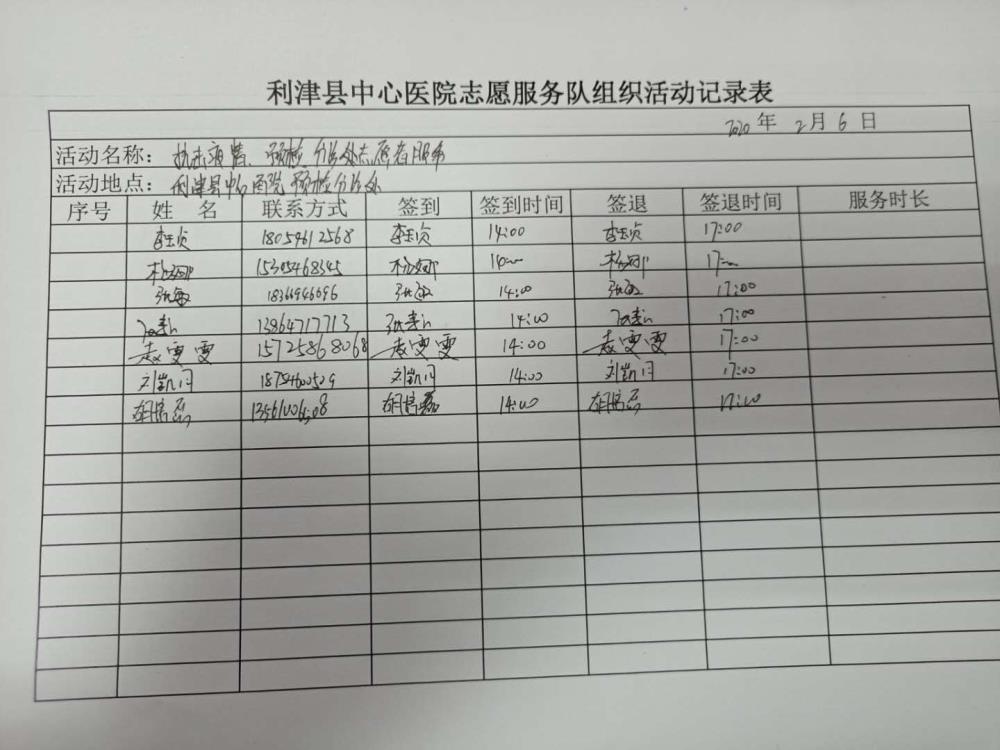 利津县中心医院志愿服务队组织活动记录表
2020年 2月 6日
活动名称：抗击疫情、预检分诊处志愿者服务
活动地点：利津县中心医院预检分诊处
序号 姓 名 联系方式 签到 签到时间 签退 签退时间 服务时长
李玉贞 18059612568 李玉贞 14:00 李玉贞 17:00
15305468345 14:00 17:00
张敏 18366946696 张敏 14:00 张敏 17:00
13864717713 14:00 17:00
袁雯雯 15725868068 袁雯雯 14:00 袁雯雯 17:00
刘凯同 18754600509 刘凯同 14:00 刘凯同 17:00
14:00 17:00